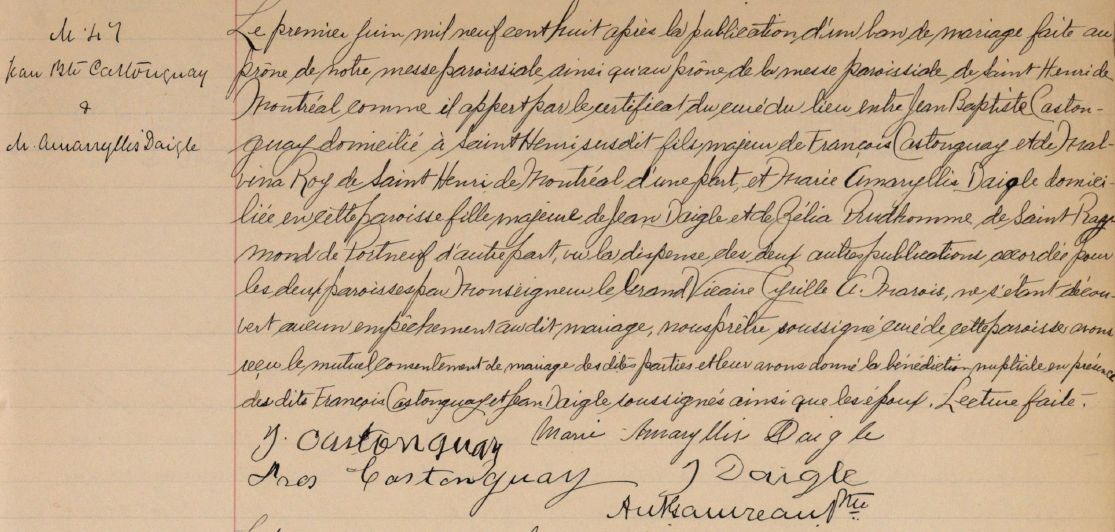 M. 47
Jean Bte Castonguay
&
M. Amarryllis Daigle
Le premier juin mil neuf cent huit après la publication d'un ban de mariage faite au
prône de notre messe paroissiale ainsi qu'au prône de la messe paroissiale de Saint Henri de
Montréal comme il appert par le certificat du curé du lieu entre Jean Baptiste Caston-
guay domicilié à Saint Henri susdit fils majeur de François Castonguay et de Mal-
vina Roy de Saint Henri de Montréal d'une part, et Marie Amaryllis Daigle domici-
liée en cette paroisse fille majeure de Jean Daigle et de Zélia Prudhomme de Saint Ray-
mond de Portneuf d'autre part, vu la dispense des deux autres publications accordée pour
les deux paroisses par Monseigneur le Grand Vicaire Cyrille A. Marois, ne s'étant décou-
vert aucun empêchement au dit mariage, nous prêtre soussigné curé de cette paroisse avons
reçu le mutuel consentement de mariage des dites parties et leur avons donné la bénédiction nuptiale en présence
des dits François Castonguay et Jean Daigle soussignés ainsi que les époux. Lecture faite.
J. Castonguay Marie Amaryllis Daigle
Frs Castonguay J Daigle
Ptre